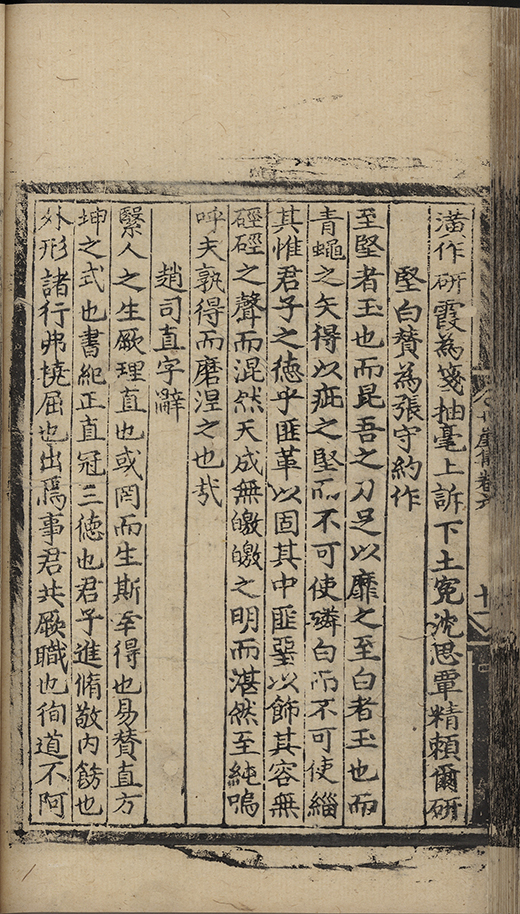 潢作研霞為箋抽毫上訴下土寃沈思覃精頼爾研
堅白賛為張守約作
至堅者玉也而昆吾之刀足以靡之至白者玉也而
青蠅之矢得以疵之堅而不可使磷白而不可使緇
其惟君子之德乎匪革以固其中匪堊以飾其容無
硜硜之聲而混然天成無皦皦之明而湛然至純嗚
呼夫孰得而磨涅之也㢤
趙司直字辭
繄人之生厥理直也或罔而生斯幸得也易賛直方
坤之式也書紀正直冠三德也君子進脩敬内飭也
外形諸行弗撓屈也出爲事君共厥職也徇道不阿
卷六
十